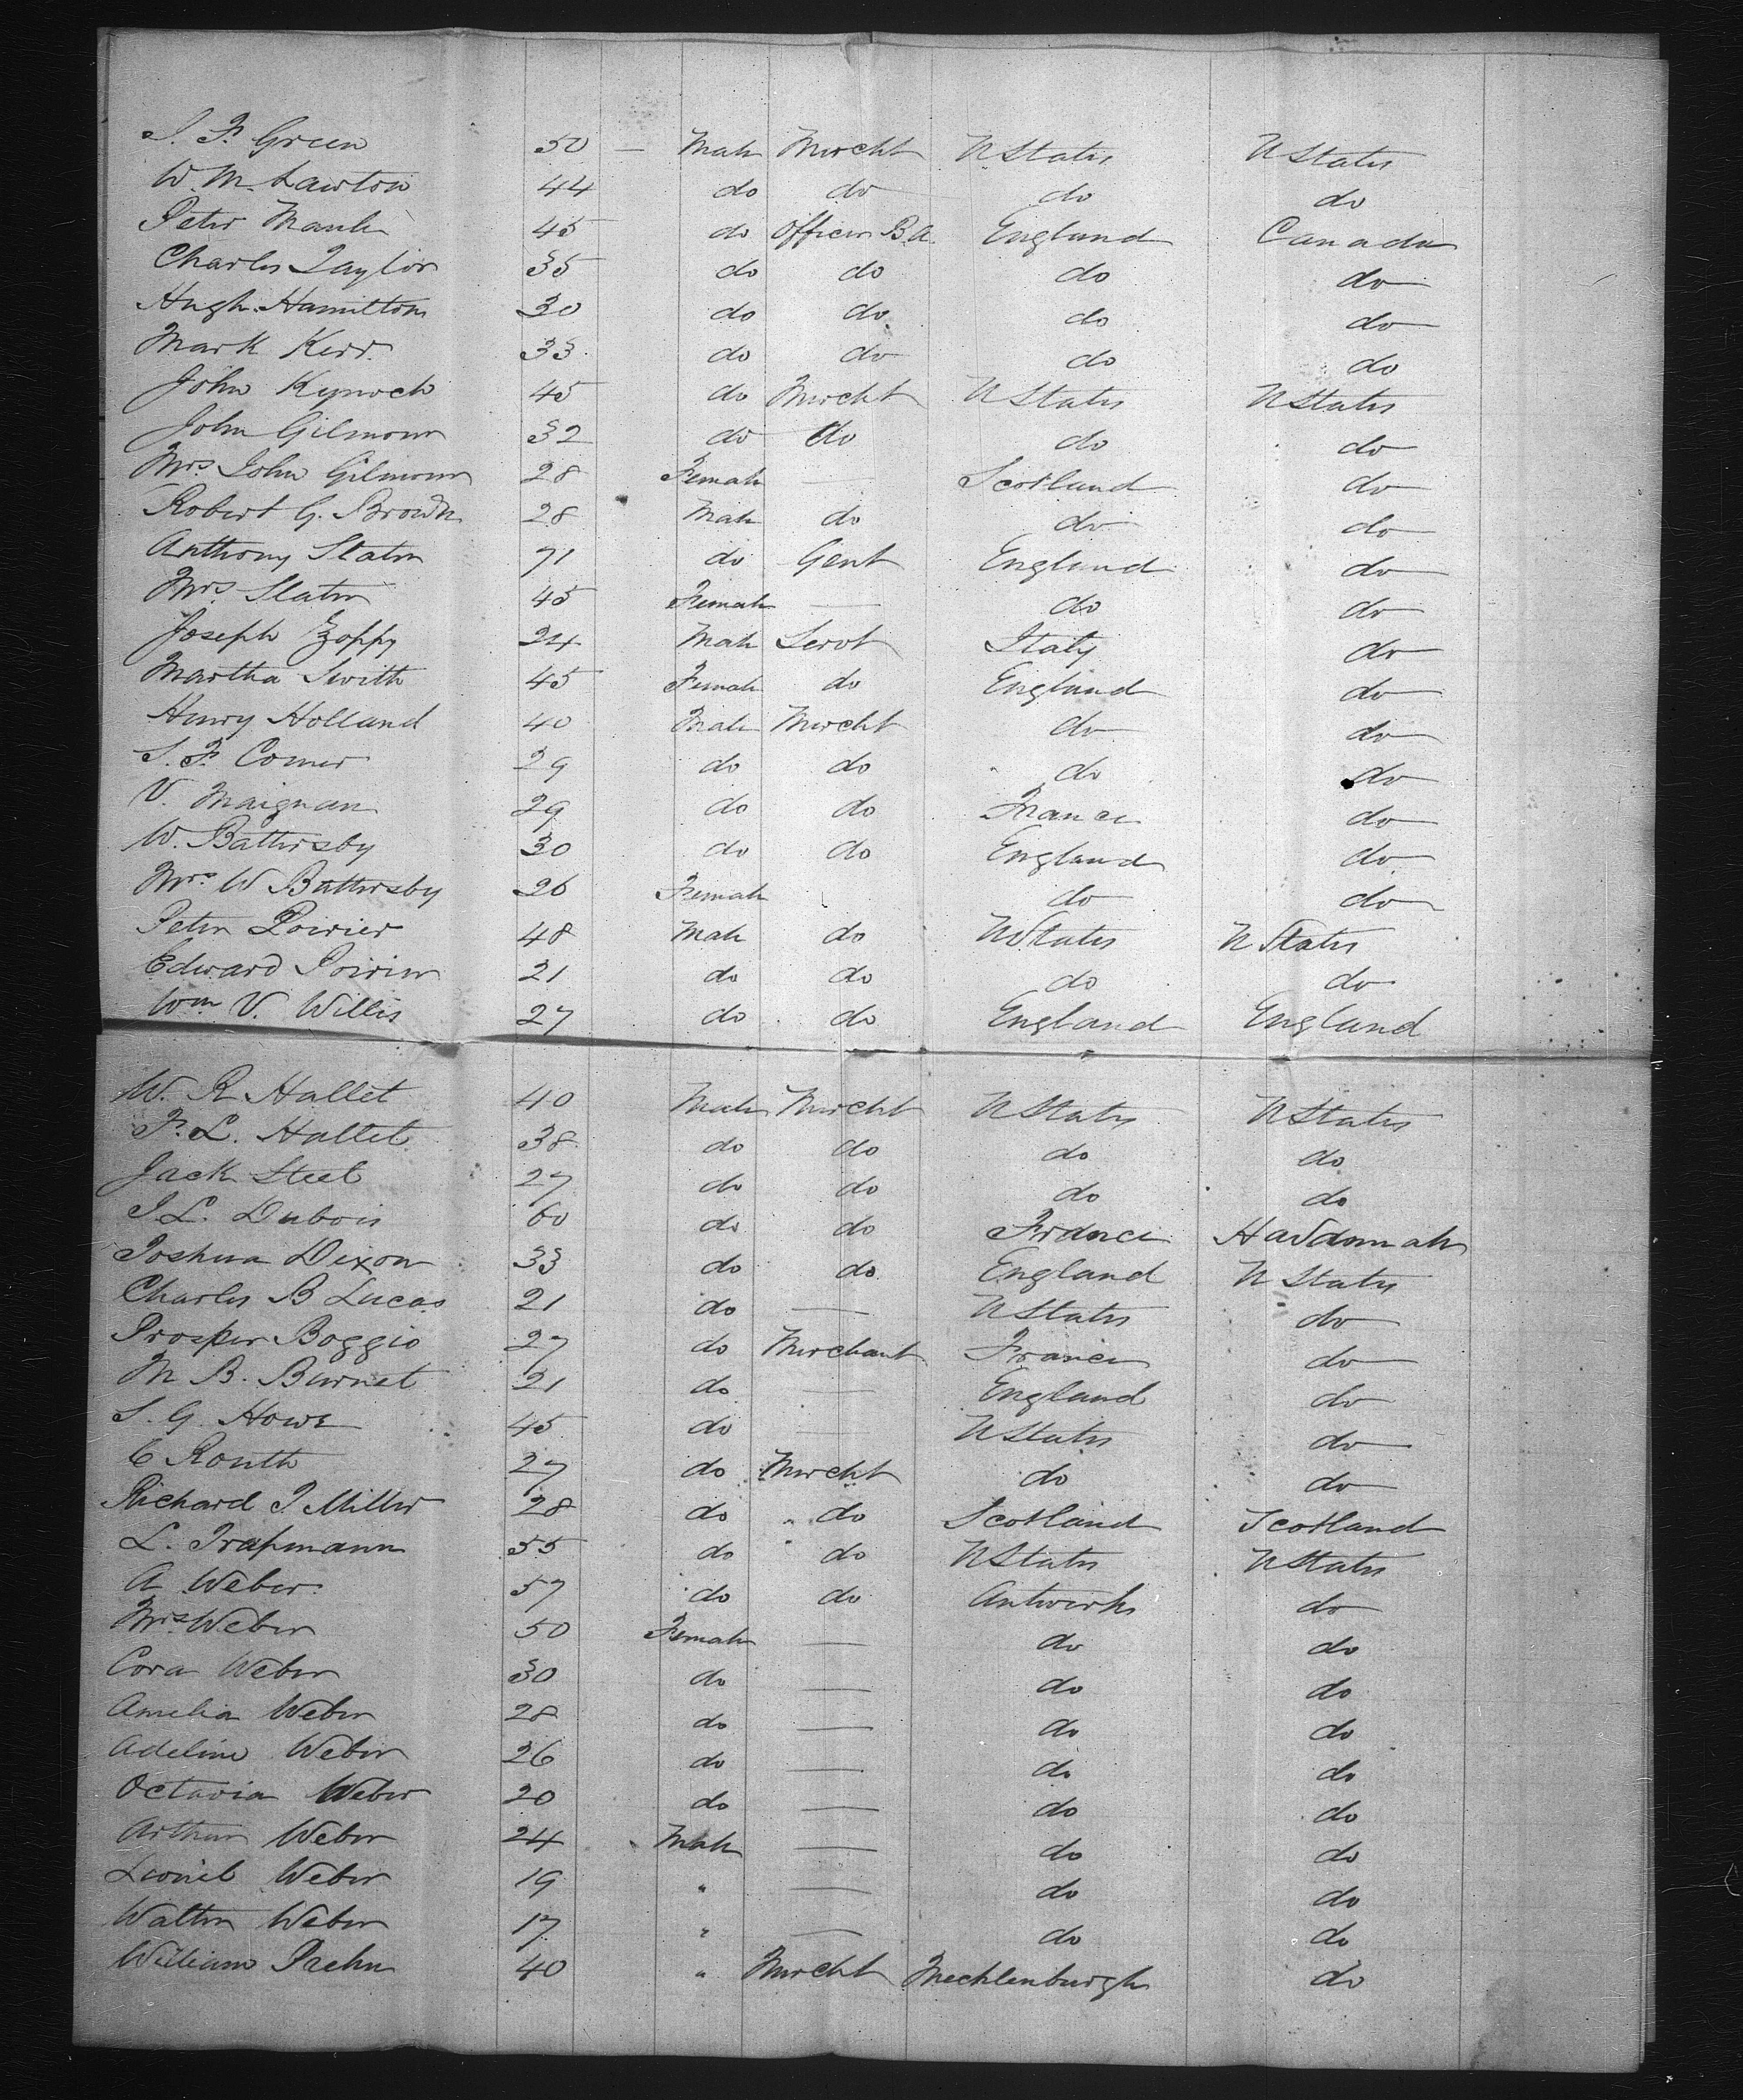 S. F. Green 50 — Male Mercht U States U States
W. M. Lawton 44 do do do do
Peter 45 do Officer B.A. England Canada
Charles Taylor 35 do do do do
Hugh Hamilton 30 do do do do
Mark Kerr 33 do do do do
John Kynoch 45 do Mercht U States U States
John Gilmour 32 do do do do
Mrs. John Gilmour 28 Female — Scotland do
Robert G. Brown 28 Male do do do
Anthony Slater 71 do Gent England do
Mrs. Slater 45 Female — do do
Joseph Zoppy 24 Male Servt Italy do
Martha Smith 45 Female do England do
Henry Holland 40 Male Mercht do do
S. F. Comer 29 do do do do
V. Maignan 29 do do France do
W. Battersby 30 do do England do
Mrs. W Battersby 26 Female do do
Peter Poirier 48 Male do U States U States
Edward Poirier 21 do do do do
Wm V. Willis 27 do do England England
W. R Hallet 40 Male Mercht U States U States
F. L. Hallet 38 do do do do
Jack Steel 27 do do do do
J. L. Dubois 60 do do France
Joshua Dixon 33 do do England U States
Charles B Lucas 21 do — U States do
Prosper Boggio 27 do Merchant France do
M B. Burnet 21 do — England do
S. G. Howe 45 do — U States do
C Routh 27 do Mercht do do
Richard J. Miller 28 do do Scotland Scotland
L. Trapmann 55 do do U States U States
A Weber 57 do do Antwerp do
Mrs Weber 50 Female — do do
Cora Weber 30 do — do do
Amelia Weber 28 do — do do
Adeline Weber 26 do — do do
Octavia Weber 20 do — do do
Arthur Weber 24 Male — do do
Lionel Weber 19 " — do do
Walter Weber 17 " — do do
William Prehn 40 " Mercht Mecklenburgh do